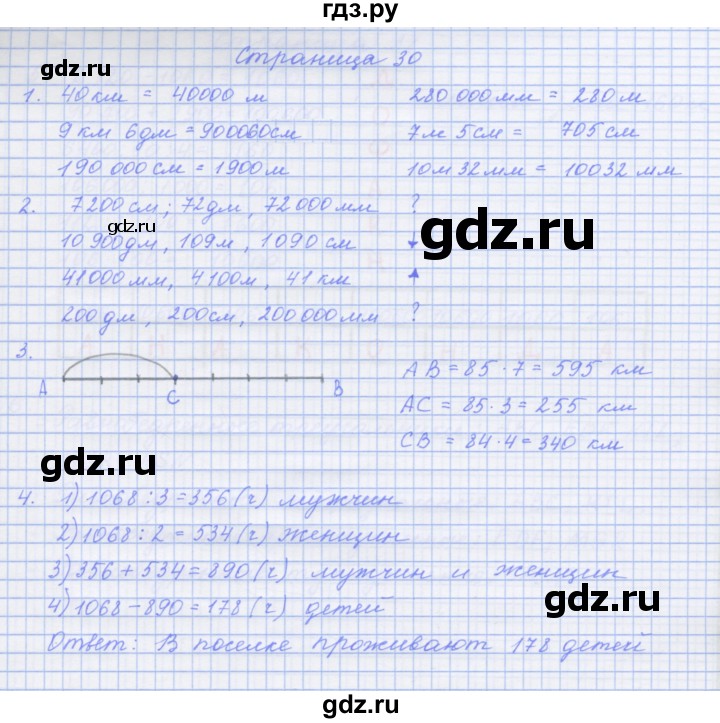 гдз.ру
Страница 30
gdz.ru
1. 40 км = 40000 м 280 000 мм = 280 м
9 км 6 дм = 900060 см 7 м 5 см = 705 см
gdz.ru
190 000 см = 1900 м 10 м 32 мм = 10032 мм
2. 7200 см; 72 дм, 72 000 мм ?
gdz.ru
gdz.ru
10 900 дм, 109 м, 1090 см ↓
41000 мм, 4100 м, 41 км ↑
200 дм, 200 см, 200 000 мм ?
3.
А С В
АВ = 85 · 7 = 595 км
АС = 85 · 3 = 255 км
СВ = 84 · 4 = 340 км
gdz.ru
4. 1) 1068 : 3 = 356 (ч) мужчин
2) 1068 : 2 = 534 (ч) женщин
3) 356 + 534 = 890 (ч) мужчин и женщин
gdz.ru
4) 1068 – 890 = 178 (ч) детей
Ответ: В поселке проживают 178 детей
gdz.ru
gdz.ru